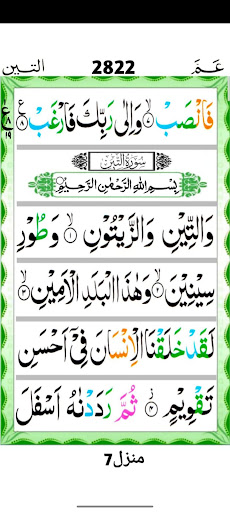 التين 2822 عَمَّ
فَانْصَبْ ۙ۷ وَاِلٰى رَبِّكَ فَارْغَبْ ۠۸
سُوْرَةُ التِّيْنِ
بِسْمِ اللهِ الرَّحْمٰنِ الرَّحِيْمِ
وَالتِّيْنِ وَالزَّيْتُوْنِ ۙ۱ وَطُوْرِ
سِيْنِيْنَ ۙ۲ وَهٰذَا الْبَلَدِ الْاَمِيْنِ ۙ۳
لَقَدْ خَلَقْنَا الْاِنْسَانَ فِيْۤ اَحْسَنِ
تَقْوِيْمٍ ۴ ثُمَّ رَدَدْنٰهُ اَسْفَلَ
منزل7